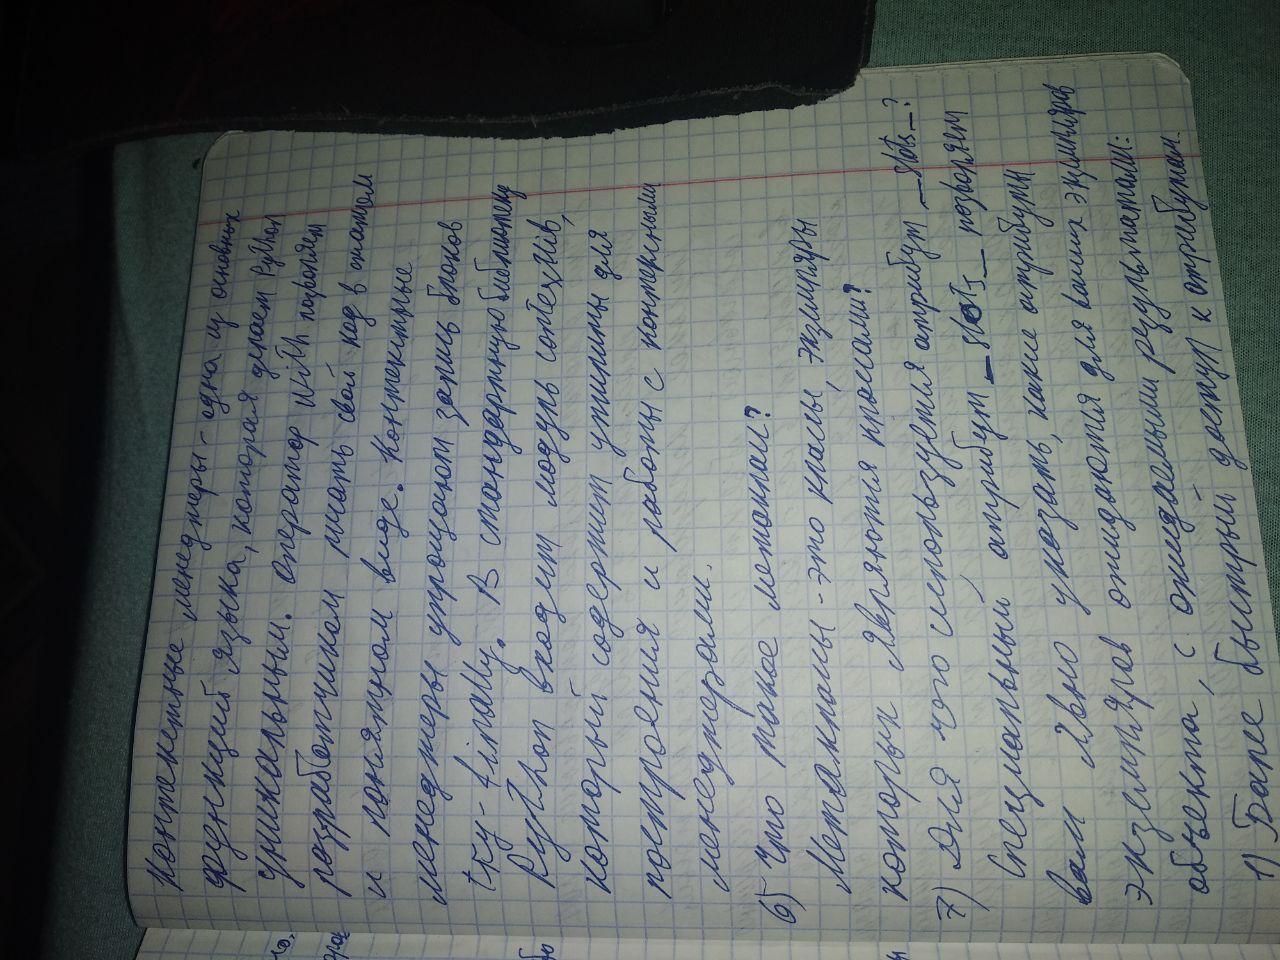 Контекстные менеджеры - одна из основных
функций языка, которая делает Python
уникальным. оператор with позволяет
разработчикам писать свой код в сжатом
и понятном виде. Контекстные
менеджеры упрощают запись блоков
try-finally. В стандартную библиотеку
Python входит модуль contextlib,
который содержит утилиты для
построения и работы с контекстными
менеджерами.
6) Что такое метаклассы?
Метаклассы - это классы, экземпляры
которых являются классами?
7) Для чего используется атрибут __slots__?
Специальный атрибут __slots__ позволяет
вам явно указать, какие атрибуты
экземпляров ожидаются для ваших экземпляров
объекта, с ожидаемыми результатами:
1) Более быстрый доступ к атрибутам.